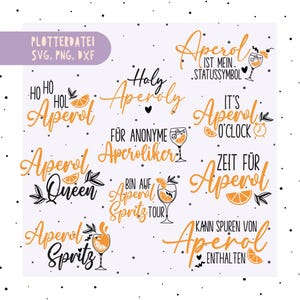 PLOTTERDATEI
SVG, PNG, DXF
Aperol
IST MEIN
STATUSSYMBOL
HO HO
HOL
Aperol
Holy
Aperoly
IT'S
Aperol
O'CLOCK
FÜR ANONYME
Aperoliker
ZEIT FÜR
Aperol
Aperol
Queen
BIN AUF
Aperol
Spritz TOUR
Aperol
Spritz
KANN SPUREN VON
Aperol
ENTHALTEN